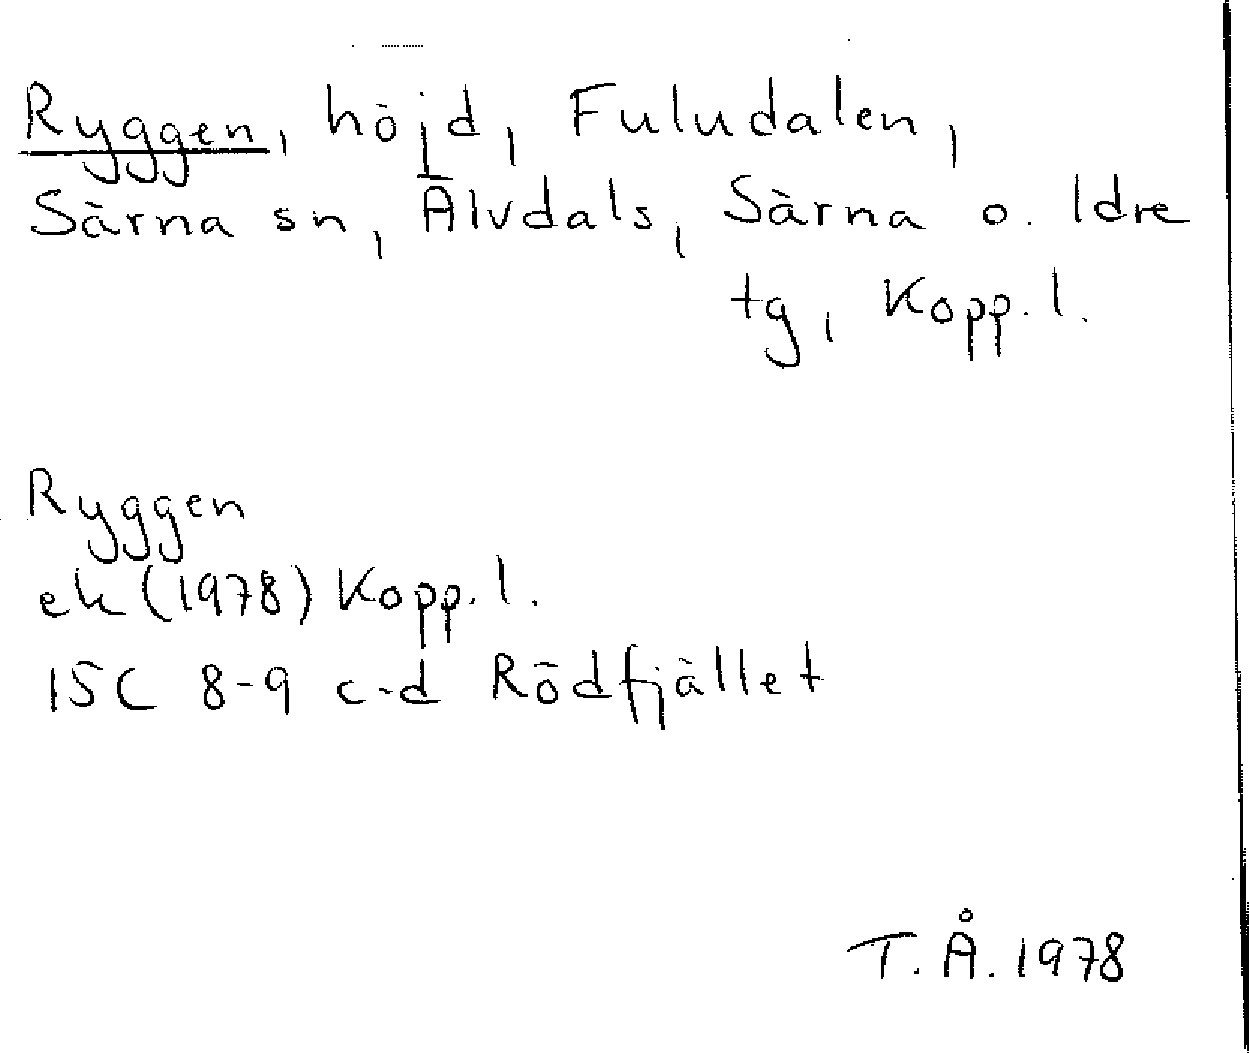 Ryggen, höjd, Fuludalen,
Särna sn, Älvdals, Särna o. Idre
tg, Kopp. l.
Ryggen
ek (1978) Kopp. l.
15C 8-9 c-d Rödfjället
T. Å. 1978